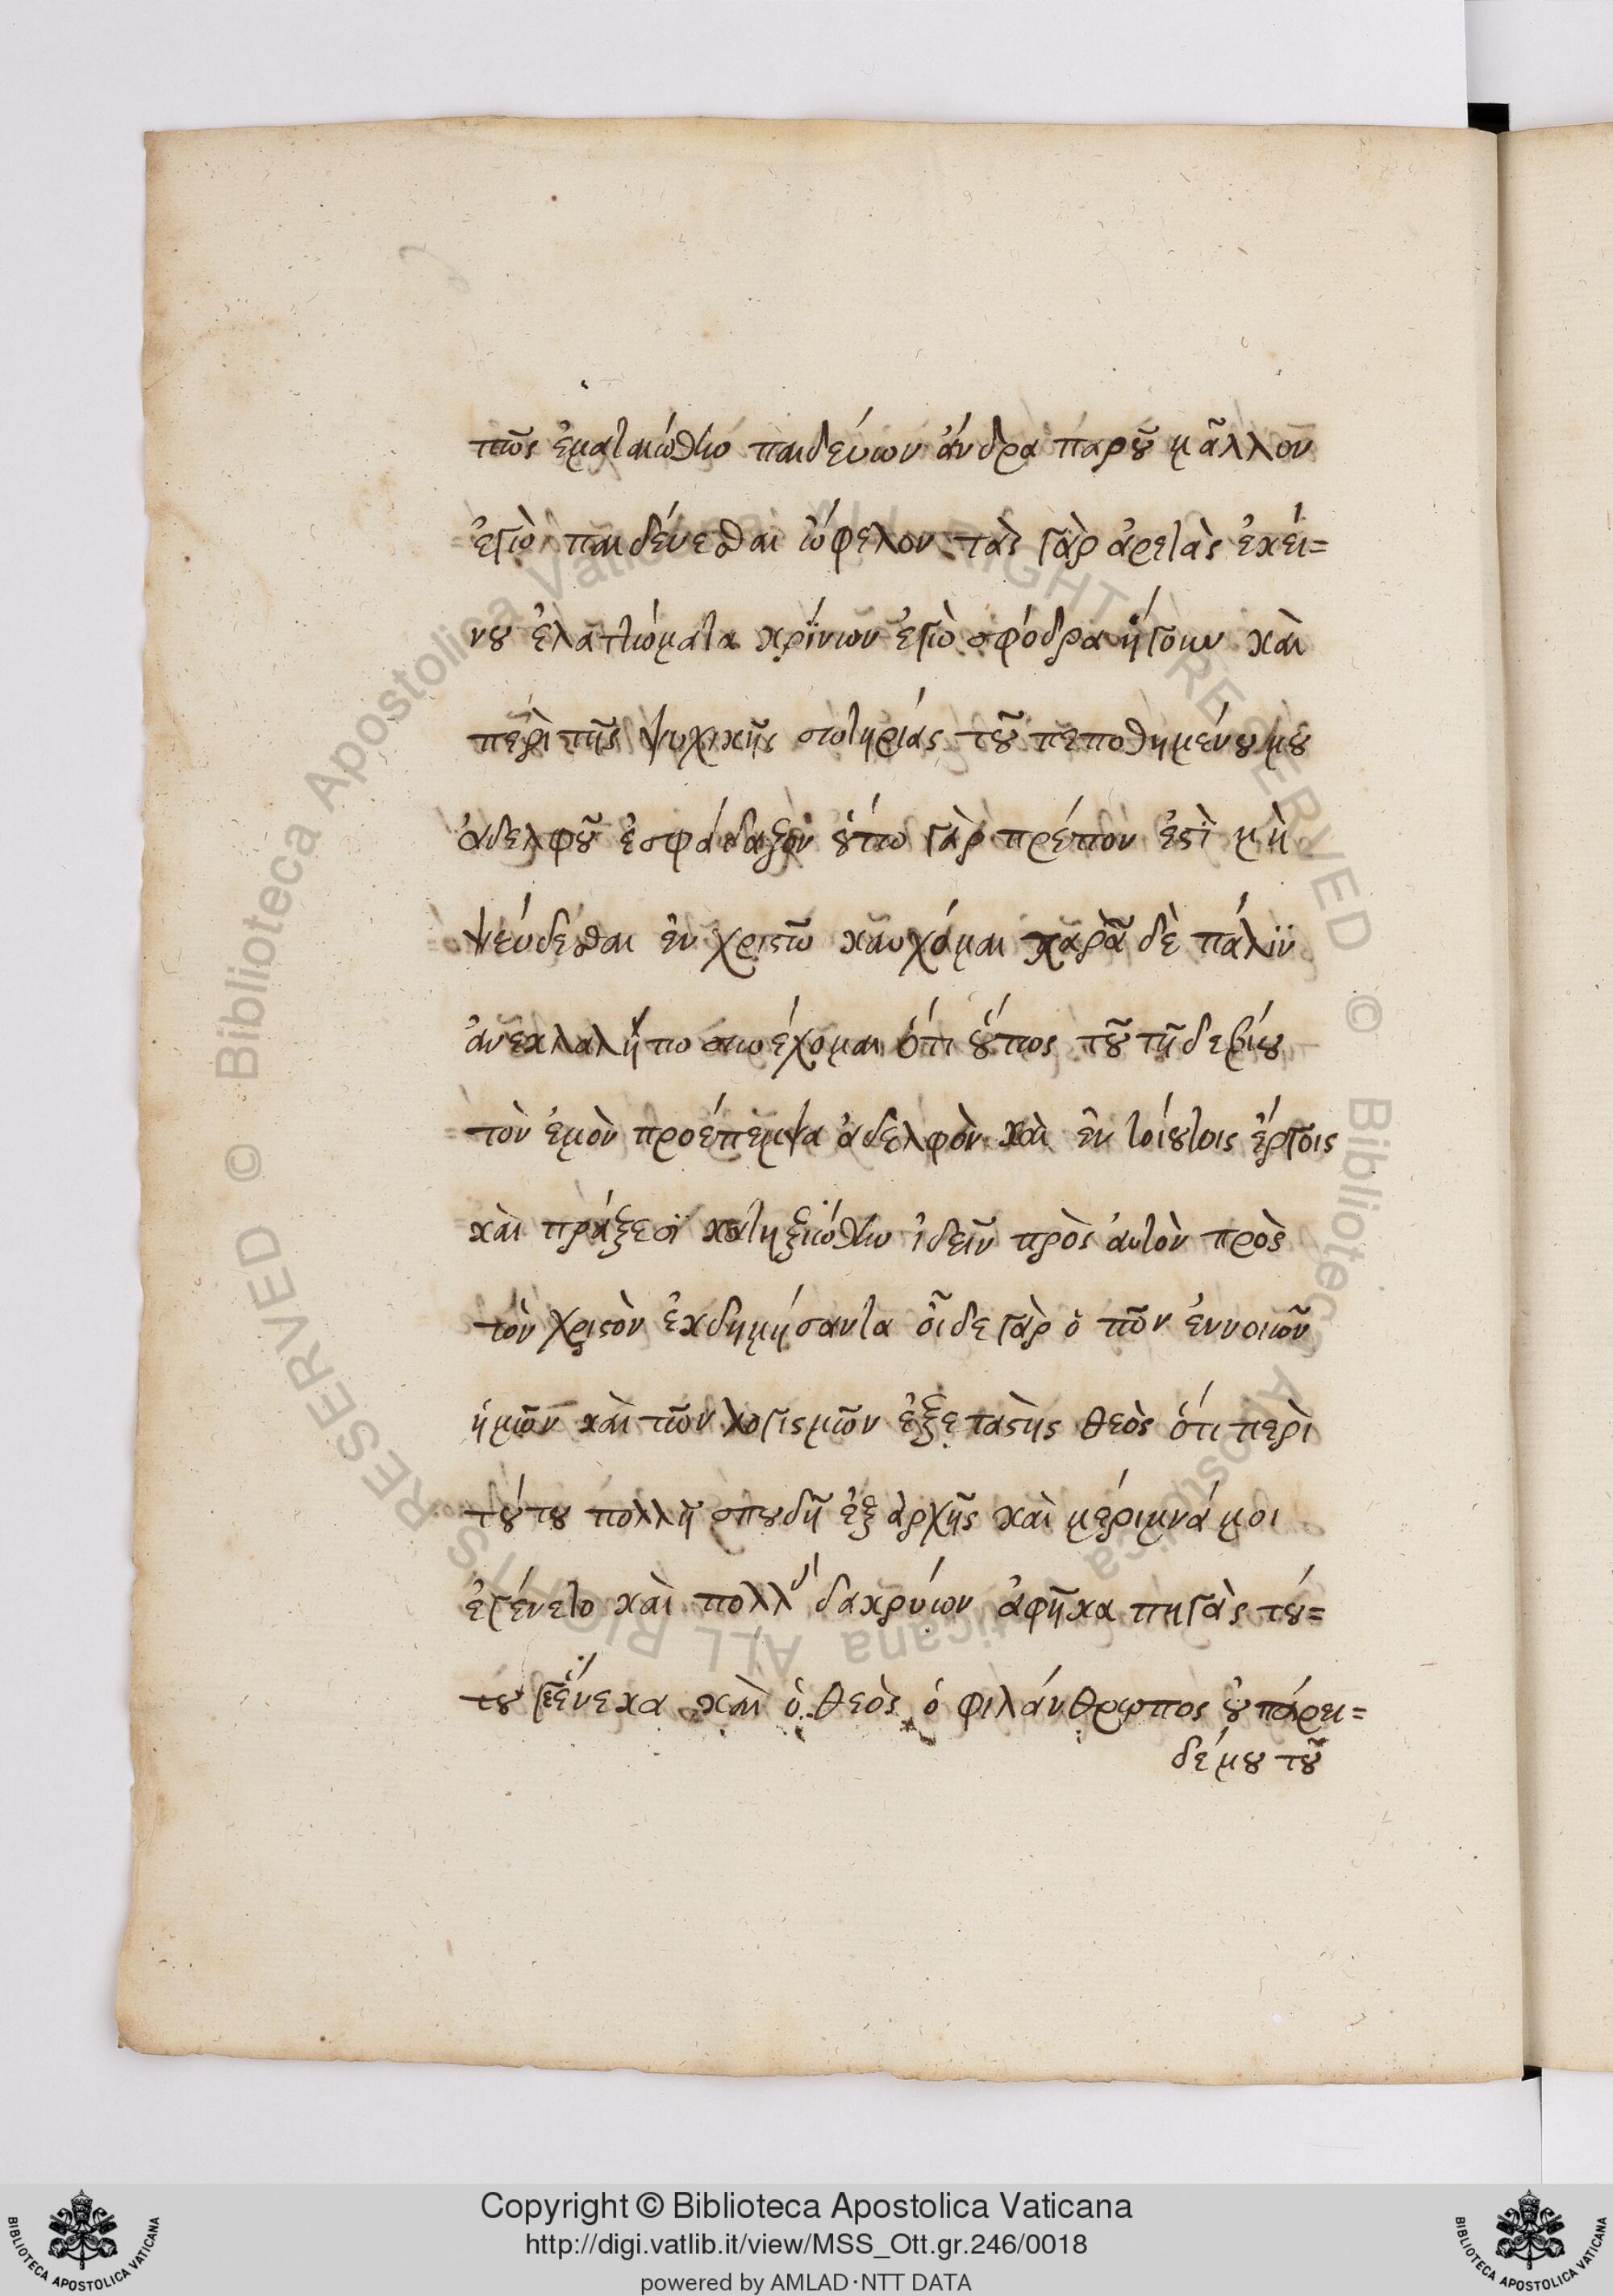 πῶς ἐματαιώθην παιδεύων ἄνδρα παρ' οὗ μᾶλλον
ἐγὼ παιδεύεσθαι ὤφελον τὰς γὰρ ἀρετὰς ἐκεί=
νου ἐλαττώματα κρίνων ἐγὼ σφόδρα ἤγουν καὶ
περὶ τῆς ψυχικῆς σωτηρίας τοῦ πεποθημένου μου
ἀδελφοῦ ἐσφάδαζον οὕτω γὰρ πρέπον ἐστὶ μὴ
ψεύδεσθαι ἐν χριστῶ καυχόμαι χαρᾶ δὲ πάλιν
ἀνεκλαλήτω συνέχομαι ὅτι οὕτως τοῦ τῇδε βίου
τὸν ἐμὸν προέπεμψα ἀδελφὸν καὶ ἐν τοιούτοις ἔργοις
καὶ πράξεσι κατηξιώθην ἰδεῖν πρὸς αὐτὸν πρὸς
τὸν χριστὸν ἐκδημήσαντα οἶδε γὰρ ὁ τῶν ἐννοιῶν
ἡμῶν καὶ τῶν λογισμῶν ἐξεταστὴς θεὸς ὅτι περὶ
τούτου πολλὴ σπουδὴ ἐξ ἀρχῆς καὶ μέριμνά μοι
ἐγένετο καὶ πολλ δακρύων ἀφῆκα πηγὰς τού=
του ἕνεκα καὶ ὁ θεὸς ὁ φιλάνθρωπος οὐ πάρει=
δέ μου τοῦ
Copyright © Biblioteca Apostolica Vaticana
http://digi.vatlib.it/view/MSS_Ott.gr.246/0018
powered by AMLAD·NTT DATA
BIBLIOTECA APOSTOLICA VATICANA
BIBLIOTECA APOSTOLICA VATICANA
© Biblioteca Apostolica Vaticana ALL RIGHTS RESERVED
© Biblioteca Apostolica Vaticana ALL RIGHTS RESERVED